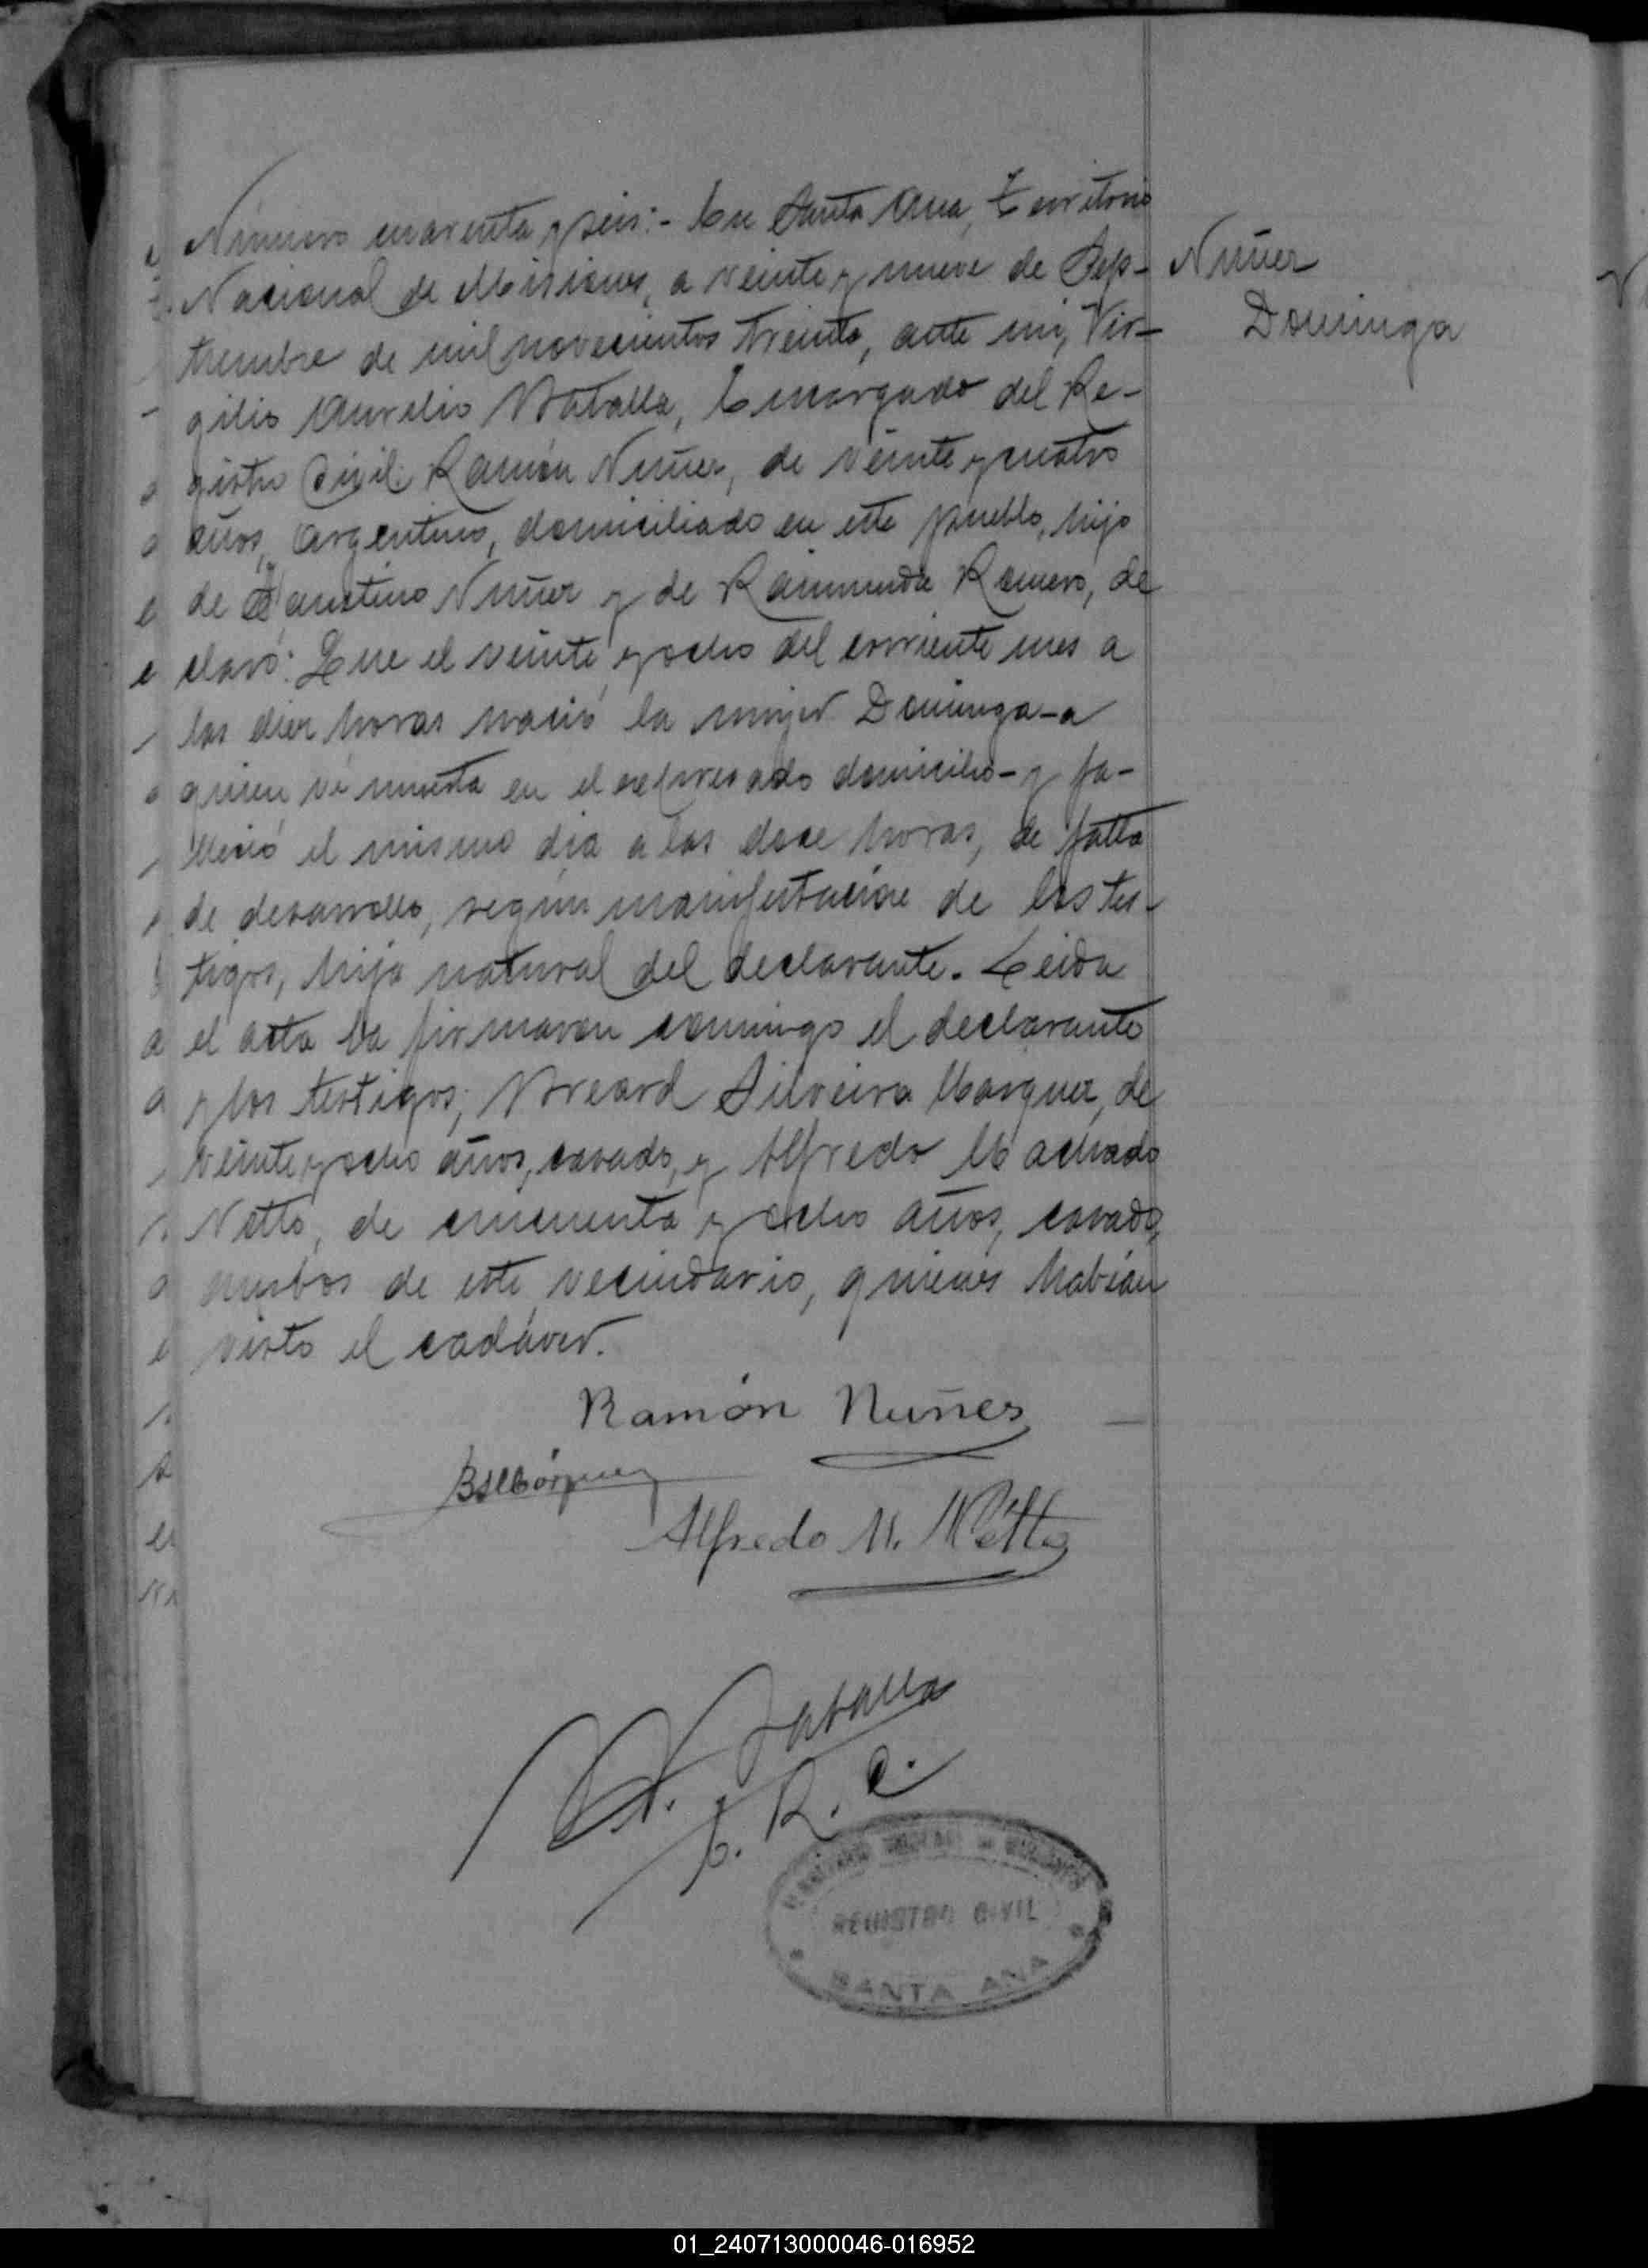 Número cuarenta y seis:- En Santa Ana, Territorio
Nacional de Misiones, a veinte y nueve de Sep-
tiembre de mil novecientos treinta, ante mi, Vir-
gilio Aurelio Zaballa, Encargado del Re-
gistro Civil: Ramón Nuñez, de veinte y cuatro
años, argentino, domiciliado en este pueblo, hijo
de Faustino Nuñez y de Raimunda Romero, de
claró: Que el veinte y ocho del corriente mes a
las diez horas nació la mujer Dominga-a
quien vi muerta en el expresado domicilio-y fa-
lleció el mismo día a las doce horas, de falta
de desarrollo, según manifestación de los tes-
tigos, hija natural del declarante. Leida
el acta la firmaron conmigo el declarante
y los testigos; Breard Silveira Marquez, de
veinte y ocho años, casado, y Alfredo Machado
Netto, de cincuenta y ocho años, casado,
ambos de este vecindario, quienes habían
visto el cadáver.
Nuñez
Dominga
Ramón Nuñes
BSMárquez
Alfredo M. Netto
V. A. Zaballa
E. R. C.
REGISTRO CIVIL
SANTA ANA
01_240713000046-016952